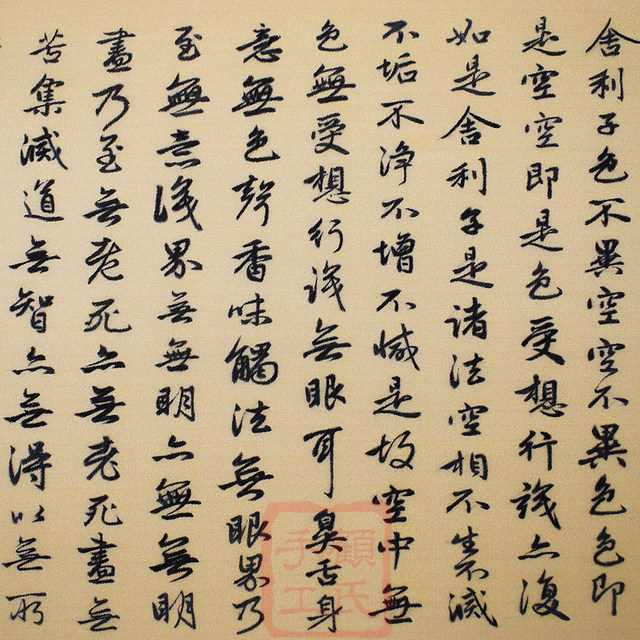 舍利子色不異空空不異色色即
是空空即是色受想行識亦復
如是舍利子是諸法空相不生不滅
不垢不淨不增不減是故空中無
色無受想行識無眼耳鼻舌身
意無色聲香味觸法無眼界乃
至無意識界無無明亦無無明
盡乃至無老死亦無老死盡無
苦集滅道無智亦無得以無所
顧氏
手工